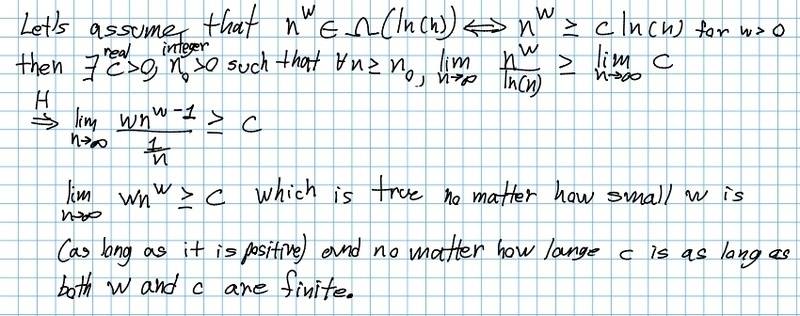 Let's assume that n^w ∈ Ω(ln(n)) ⟺ n^w ≥ c ln(n) for w>0
then ∃ real c>0, integer n₀>0 such that ∀n≥n₀, lim n→∞ n^w / ln(n) ≥ lim n→∞ c
H ⇒ lim n→∞ wn^(w-1) / (1/n) ≥ c
lim n→∞ wn^w ≥ c which is true no matter how small w is
(as long as it is positive) and no matter how large c is as long as
both w and c are finite.